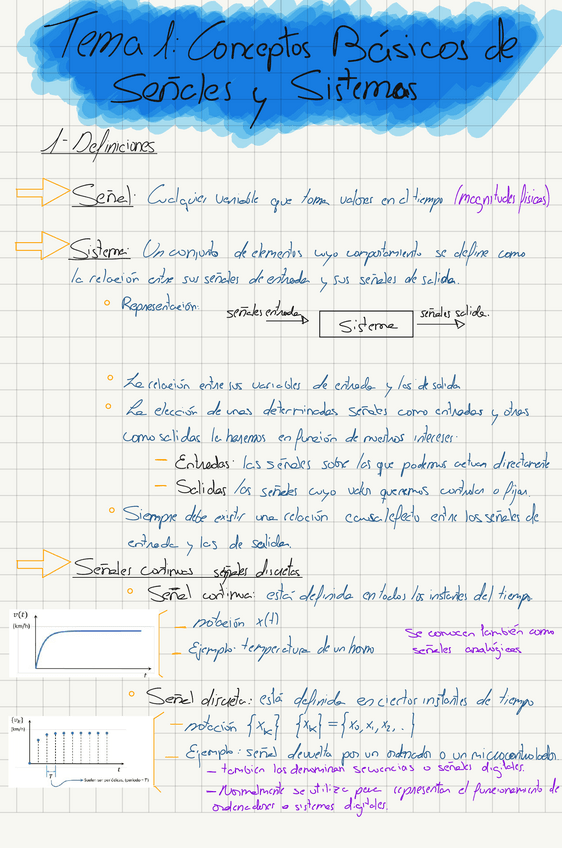 Tema 1: Conceptos Básicos de
Señales y Sistemas
1- Definiciones
Señal: Cualquier variable que toma valores en el tiempo (magnitudes físicas)
Sistema: Un conjunto de elementos cuyo comportamiento se define como
la relación entre sus señales de entrada y sus señales de salida.
Representación:
señales entrada
Sistema
señales salida.
La relación entre sus variables de entrada y las de salida
La elección de unas determinadas señales como entradas y otras
como salidas la haremos en función de nuestros intereses:
— Entradas: las señales sobre las que podemos actuar directamente
— Salidas las señales cuyo valor queremos controlar o fijar.
Siempre debe existir una relación causa/efecto entre las señales de
entrada y las de salida.
Señales continuas señales discretas
Señal continua: está definida en todos los instantes del tiempo
v(t)
(km/h)
t
— notación x(t)
— Ejemplo: temperatura de un horno
Se conocen también como
señales analógicas
Señal discreta: está definida en ciertos instantes de tiempo
{vₖ}
(km/h)
t
T
Suelen ser periódicas (periodo = T)
— notación {xₖ} {xₖ} = {x₀, x₁, x₂, . }
— Ejemplo: señal devuelta por un ordenador o un microcontrolador
— también las denominan secuencias o señales digitales.
— Normalmente se utiliza para representar el funcionamiento de
ordenadores o sistemas digitales.